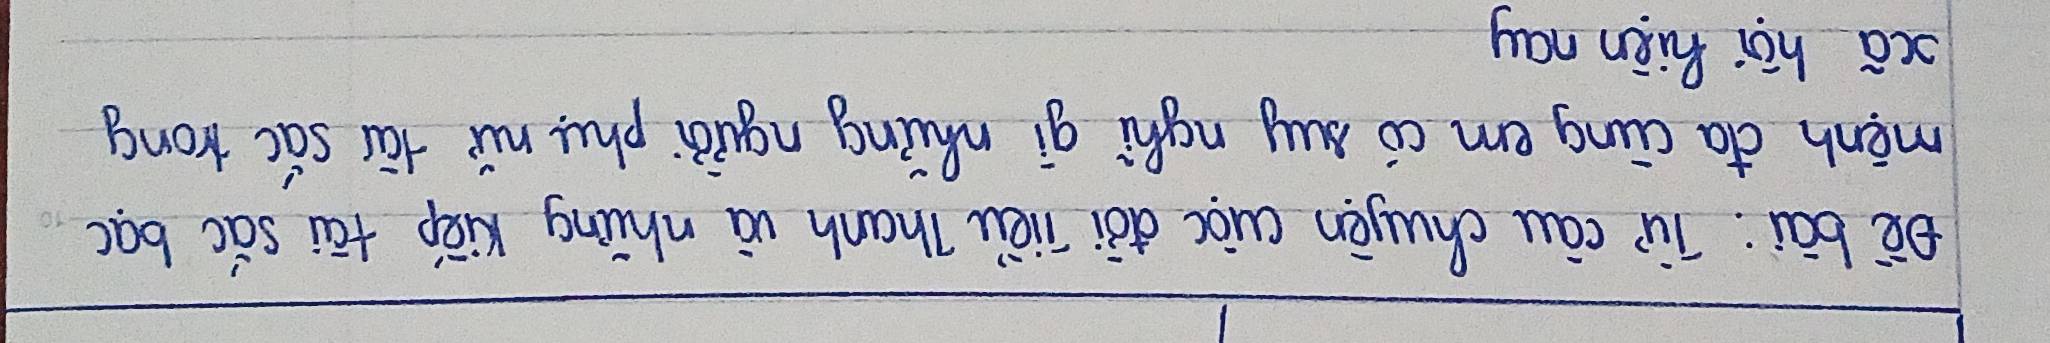 Đề bài: Từ câu chuyện cuộc đời Tiểu Thanh và những kiếp tài sắc bạc
mệnh đã cùng em có suy nghĩ gì những người phụ nữ tài sắc trong
xã hội hiện nay